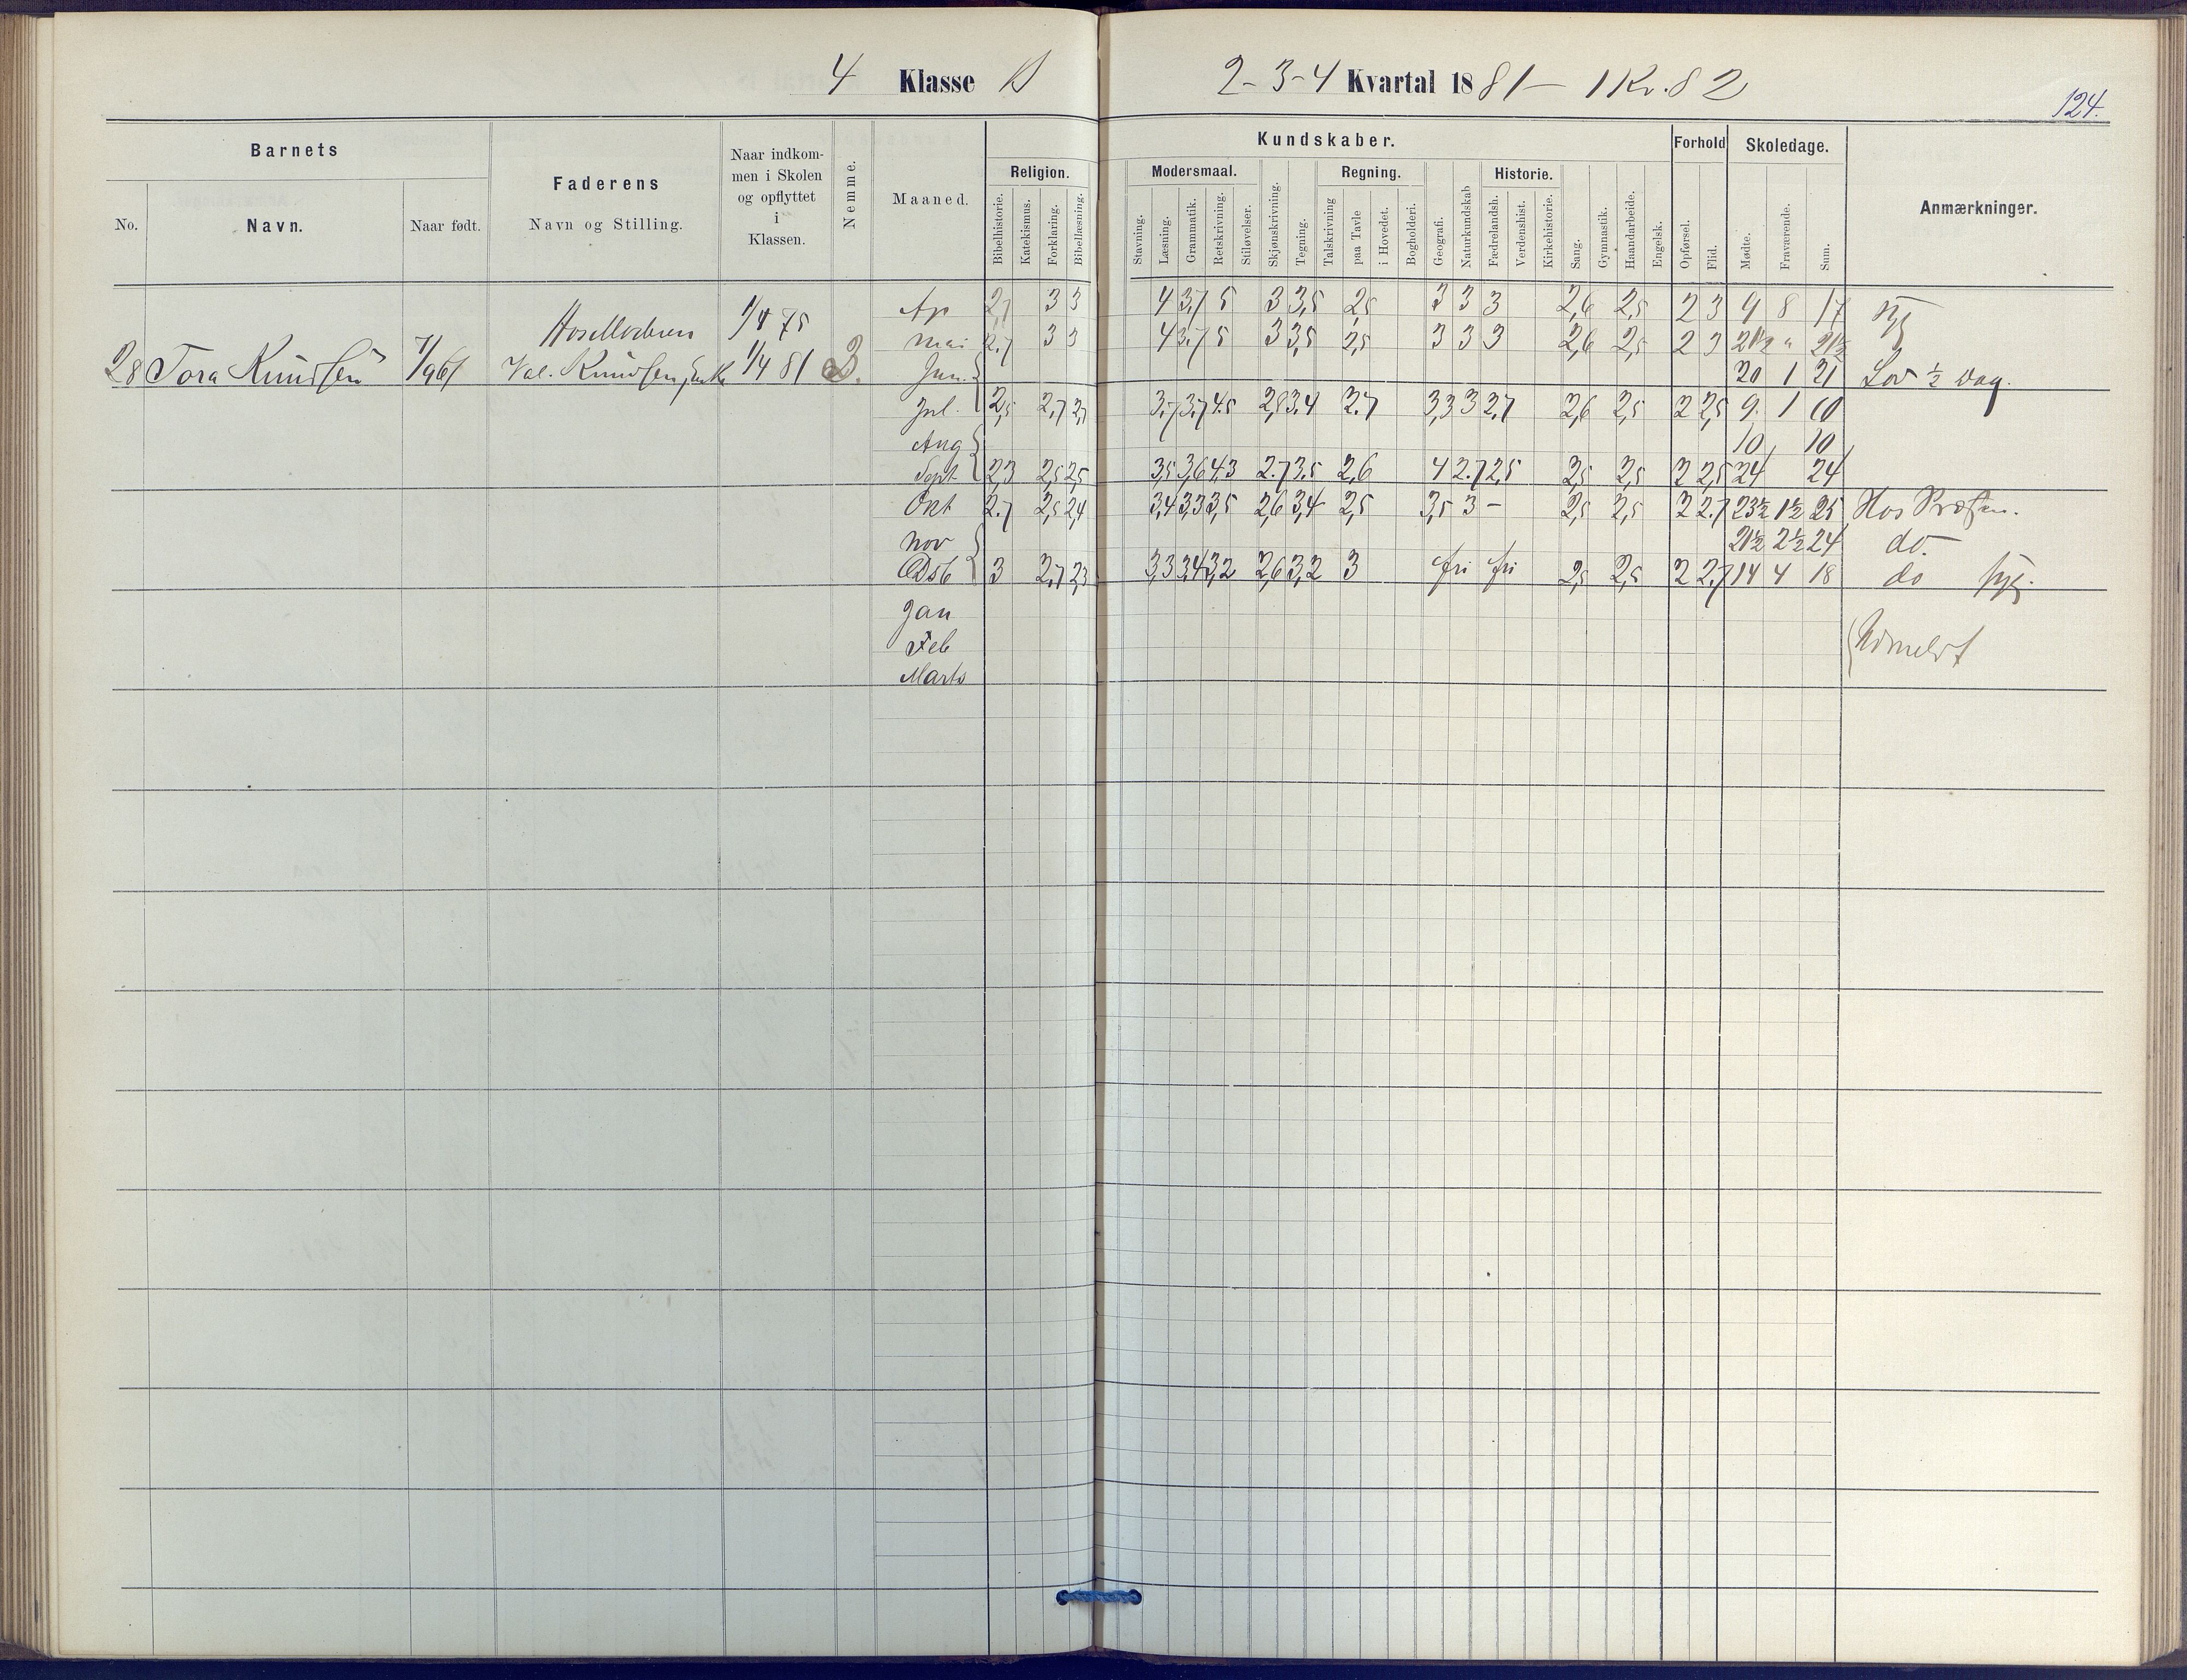 4 Klasse B
2-3-4 Kvartal 1881 - 1 Kv. 82
124.
Barnets
Faderens
Navn og Stilling.
Naar indkom-
men i Skolen
og opflyttet
i
Klassen.
Nemme.
Maaned.
Kundskaber.
Forhold
Skoledage.
Anmærkninger.
No.
Navn.
Naar født.
Religion.
Modersmaal.
Regning.
Historie.
Bibelhistorie.
Katekismus.
Forklaring.
Bibellæsning.
Stavning.
Læsning.
Grammatik.
Retskrivning.
Stiløvelser.
Skjønskrivning.
Tegning.
Talskrivning
paa Tavle
i Hovedet.
Bogholderi.
Geografi.
Naturkundskab
Fædrelandsh.
Verdenshist.
Kirkehistorie.
Sang.
Gymnastik.
Haandarbeide.
Engelsk.
Opførsel.
Flid.
Mødte.
Fraværende.
Sum.
Hos Moderen 1/4 75 Ap 2,7 3 3 4 3,7 5 3 3,5 2,5 3 3 3 2,6 2,5 2 3 9 8 17 syg
Mai 2,7 3 3 4 3,7 5 3 3,5 2,5 3 3 3 2,6 2,5 2 3 21½ " 21½
28 Tora Knudsen Val. Knudsen, Enke 1/4 81 Jun. 20 1 21 Lov ½ Dag.
Jul. 2,5 2,7 2,7 3,7 3,7 4.5 2,8 3.4 2.7 3,3 3 2,7 2,6 2,5 2 2,5 9. 1 10
Aug 10 10
Sept. 2,3 2,5 2,5 3,5 3,6 4,3 2.7 3.5 2,6 4 2.7 2,5 2,5 2,5 2 2,5 24 24
Okt 2.7 2,5 2,4 3,4 3,3 3,5 2,6 3,4 2,5 3,5 3 - 2,5 2,5 2 2.7 23½ 1½ 25 Hos Præsten.
Nov 21½ 2½ 24 do.
Dsb 3 2,7 2,3 3,3 3,4 3,2 2,6 3,2 3 fri fri 2,5 2,5 2 2,7 14 4 18 do syg.
Jan
Feb Udmeldt
Marts